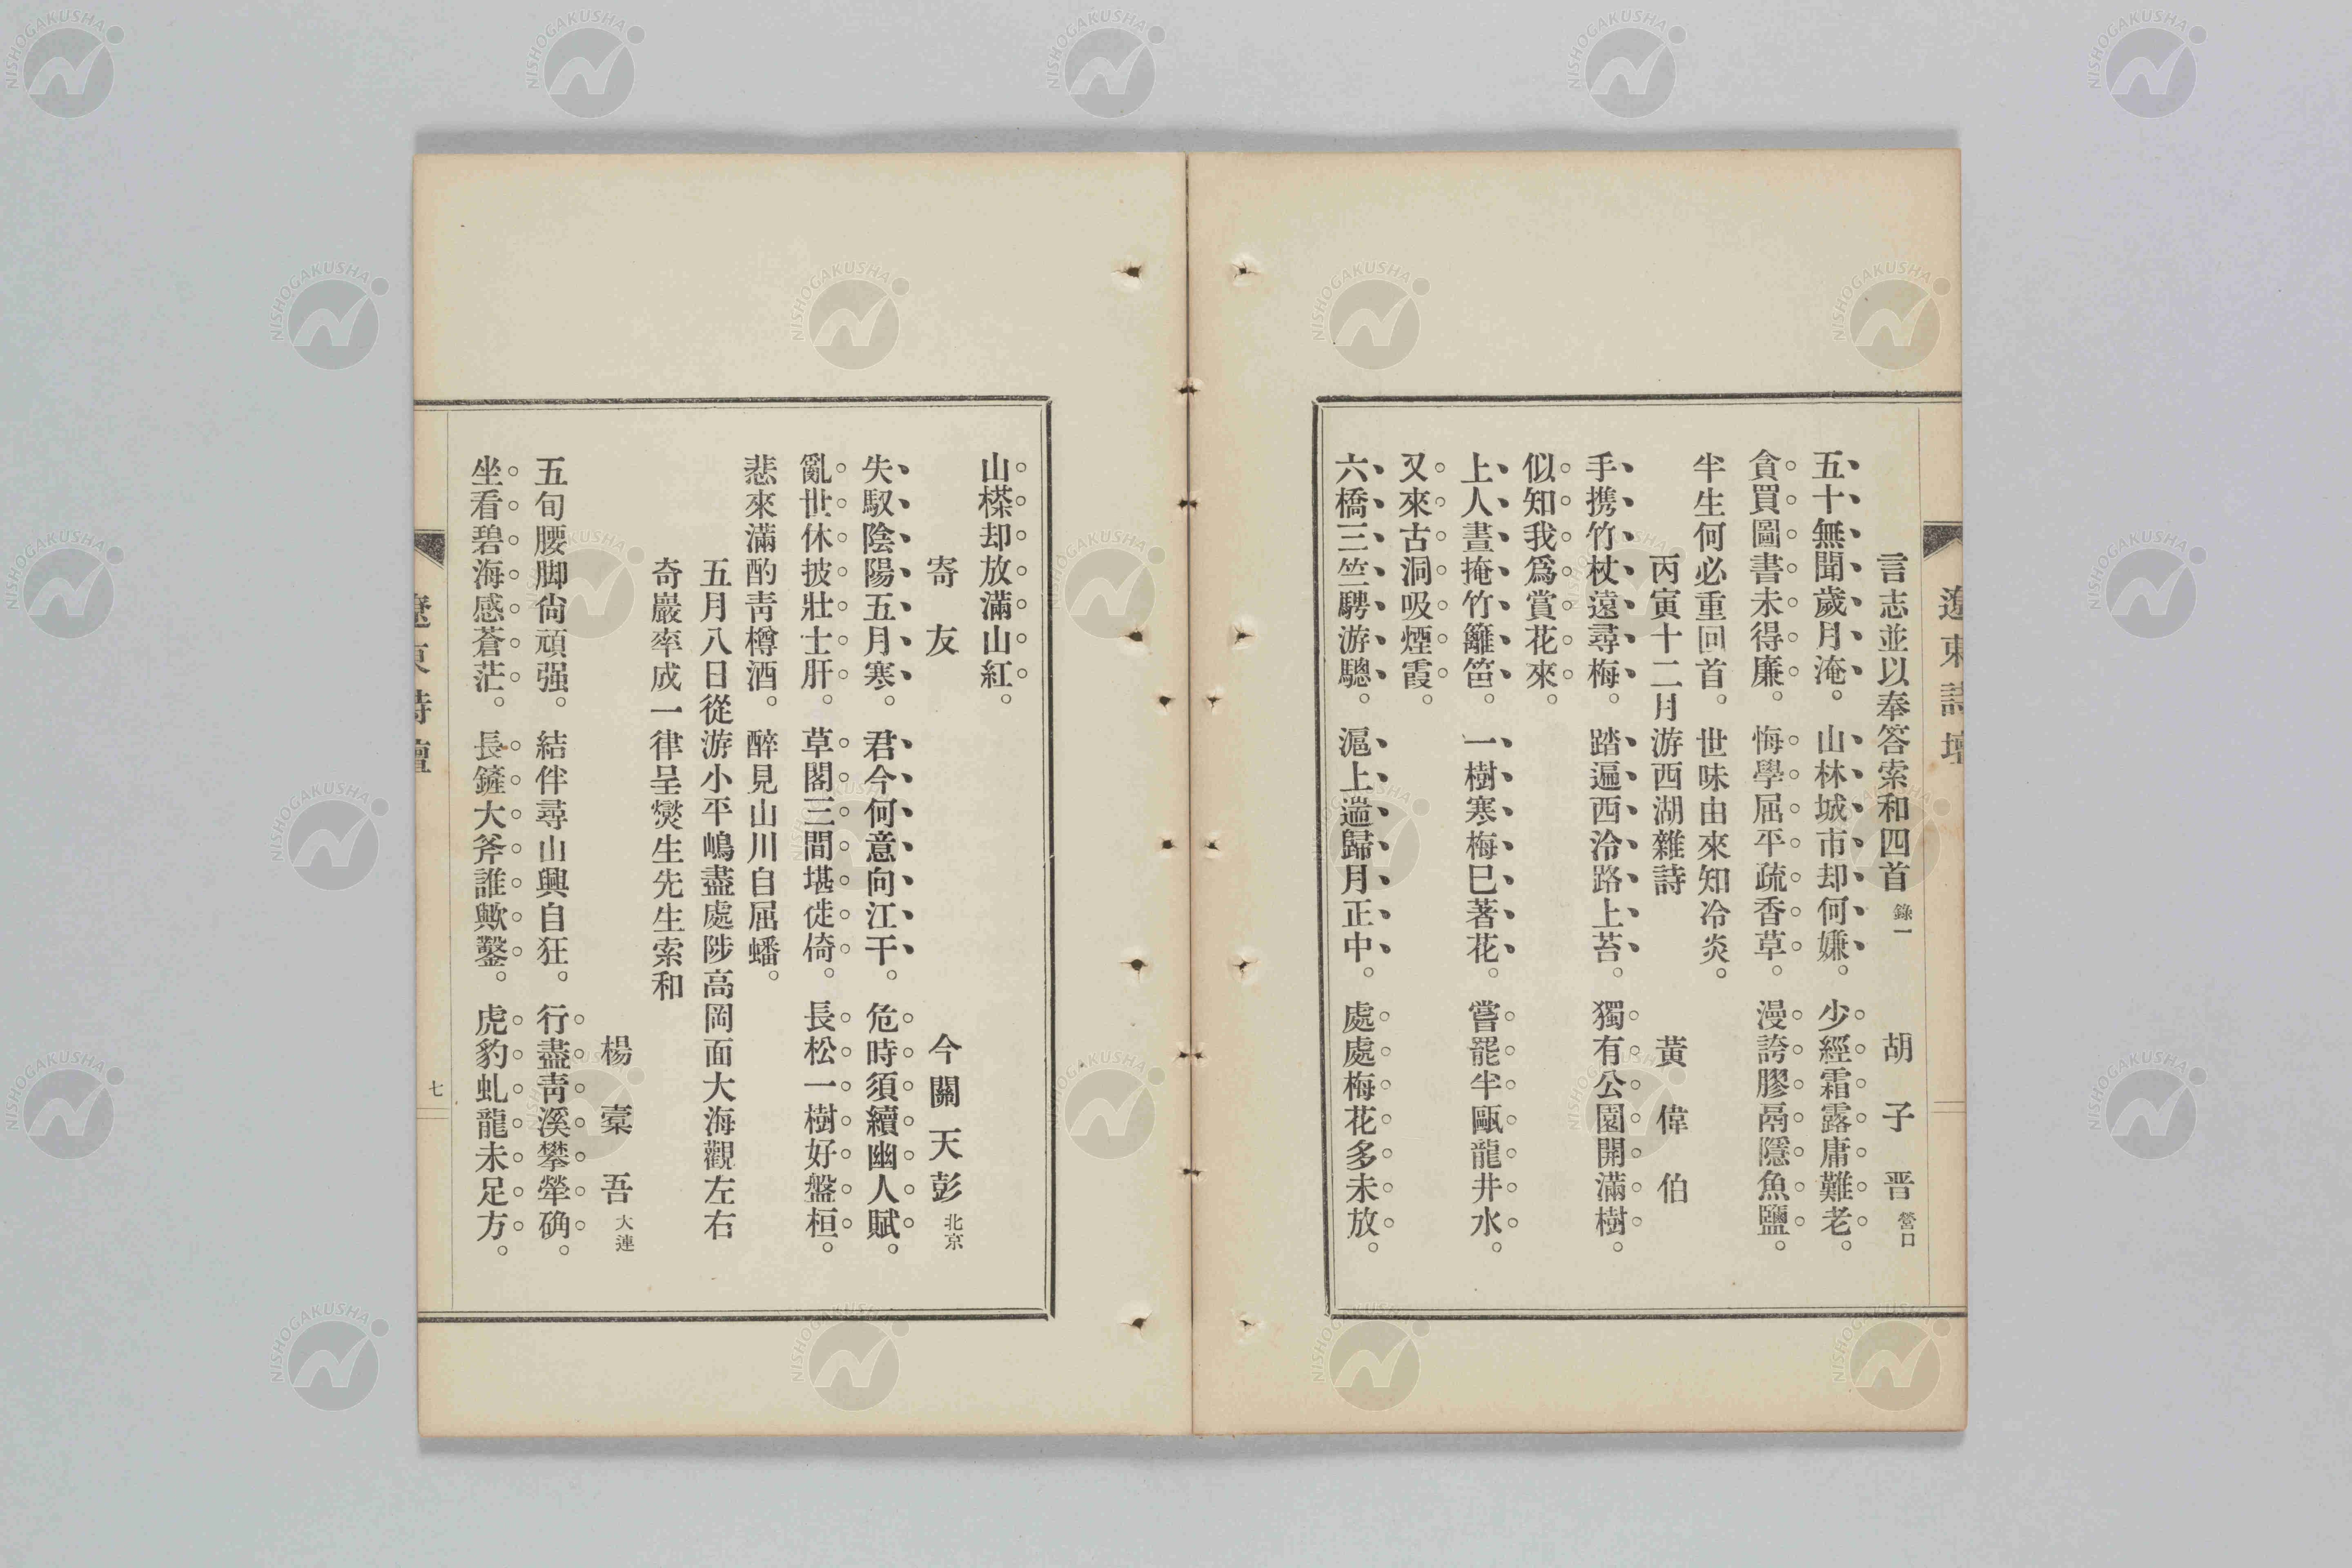 遼東詩壇
言志並以奉答索和四首 錄一 胡子晋 營口
五十無聞歲月淹。山林城市却何嫌。少經霜露庸難老。
貪買圖書未得廉。悔學屈平疏香草。漫誇膠鬲隱魚鹽。
半生何必重回首。世味由來知冷炎。
丙寅十二月游西湖雜詩 黃偉伯
手携竹杖遠尋梅。踏遍西泠路上苔。獨有公園開滿樹。
似知我爲賞花來。
上人晝掩竹籬笆。一樹寒梅已著花。嘗罷半甌龍井水。
又來古洞吸煙霞。
六橋三竺騁游驄。滬上遄歸月正中。處處梅花多未放。
山榤却放滿山紅。
寄友 今關天彭 北京
失馭陰陽五月寒。君今何意向江干。危時須續幽人賦。
亂世休披壯士肝。草閣三間堪徙倚。長松一樹好盤桓。
悲來滿酌靑樽酒。醉見山川自屈蟠。
五月八日從游小平嶋盡處陟高岡面大海觀左右
奇巖率成一律呈爕生先生索和
楊槖吾 大連
五旬腰脚尙頑强。結伴尋山興自狂。行盡靑溪攀犖确。
坐看碧海感蒼茫。長鏟大斧誰歟鑿。虎豹虬龍未足方。
遼東詩壇
七
NISHOGAKUSHA